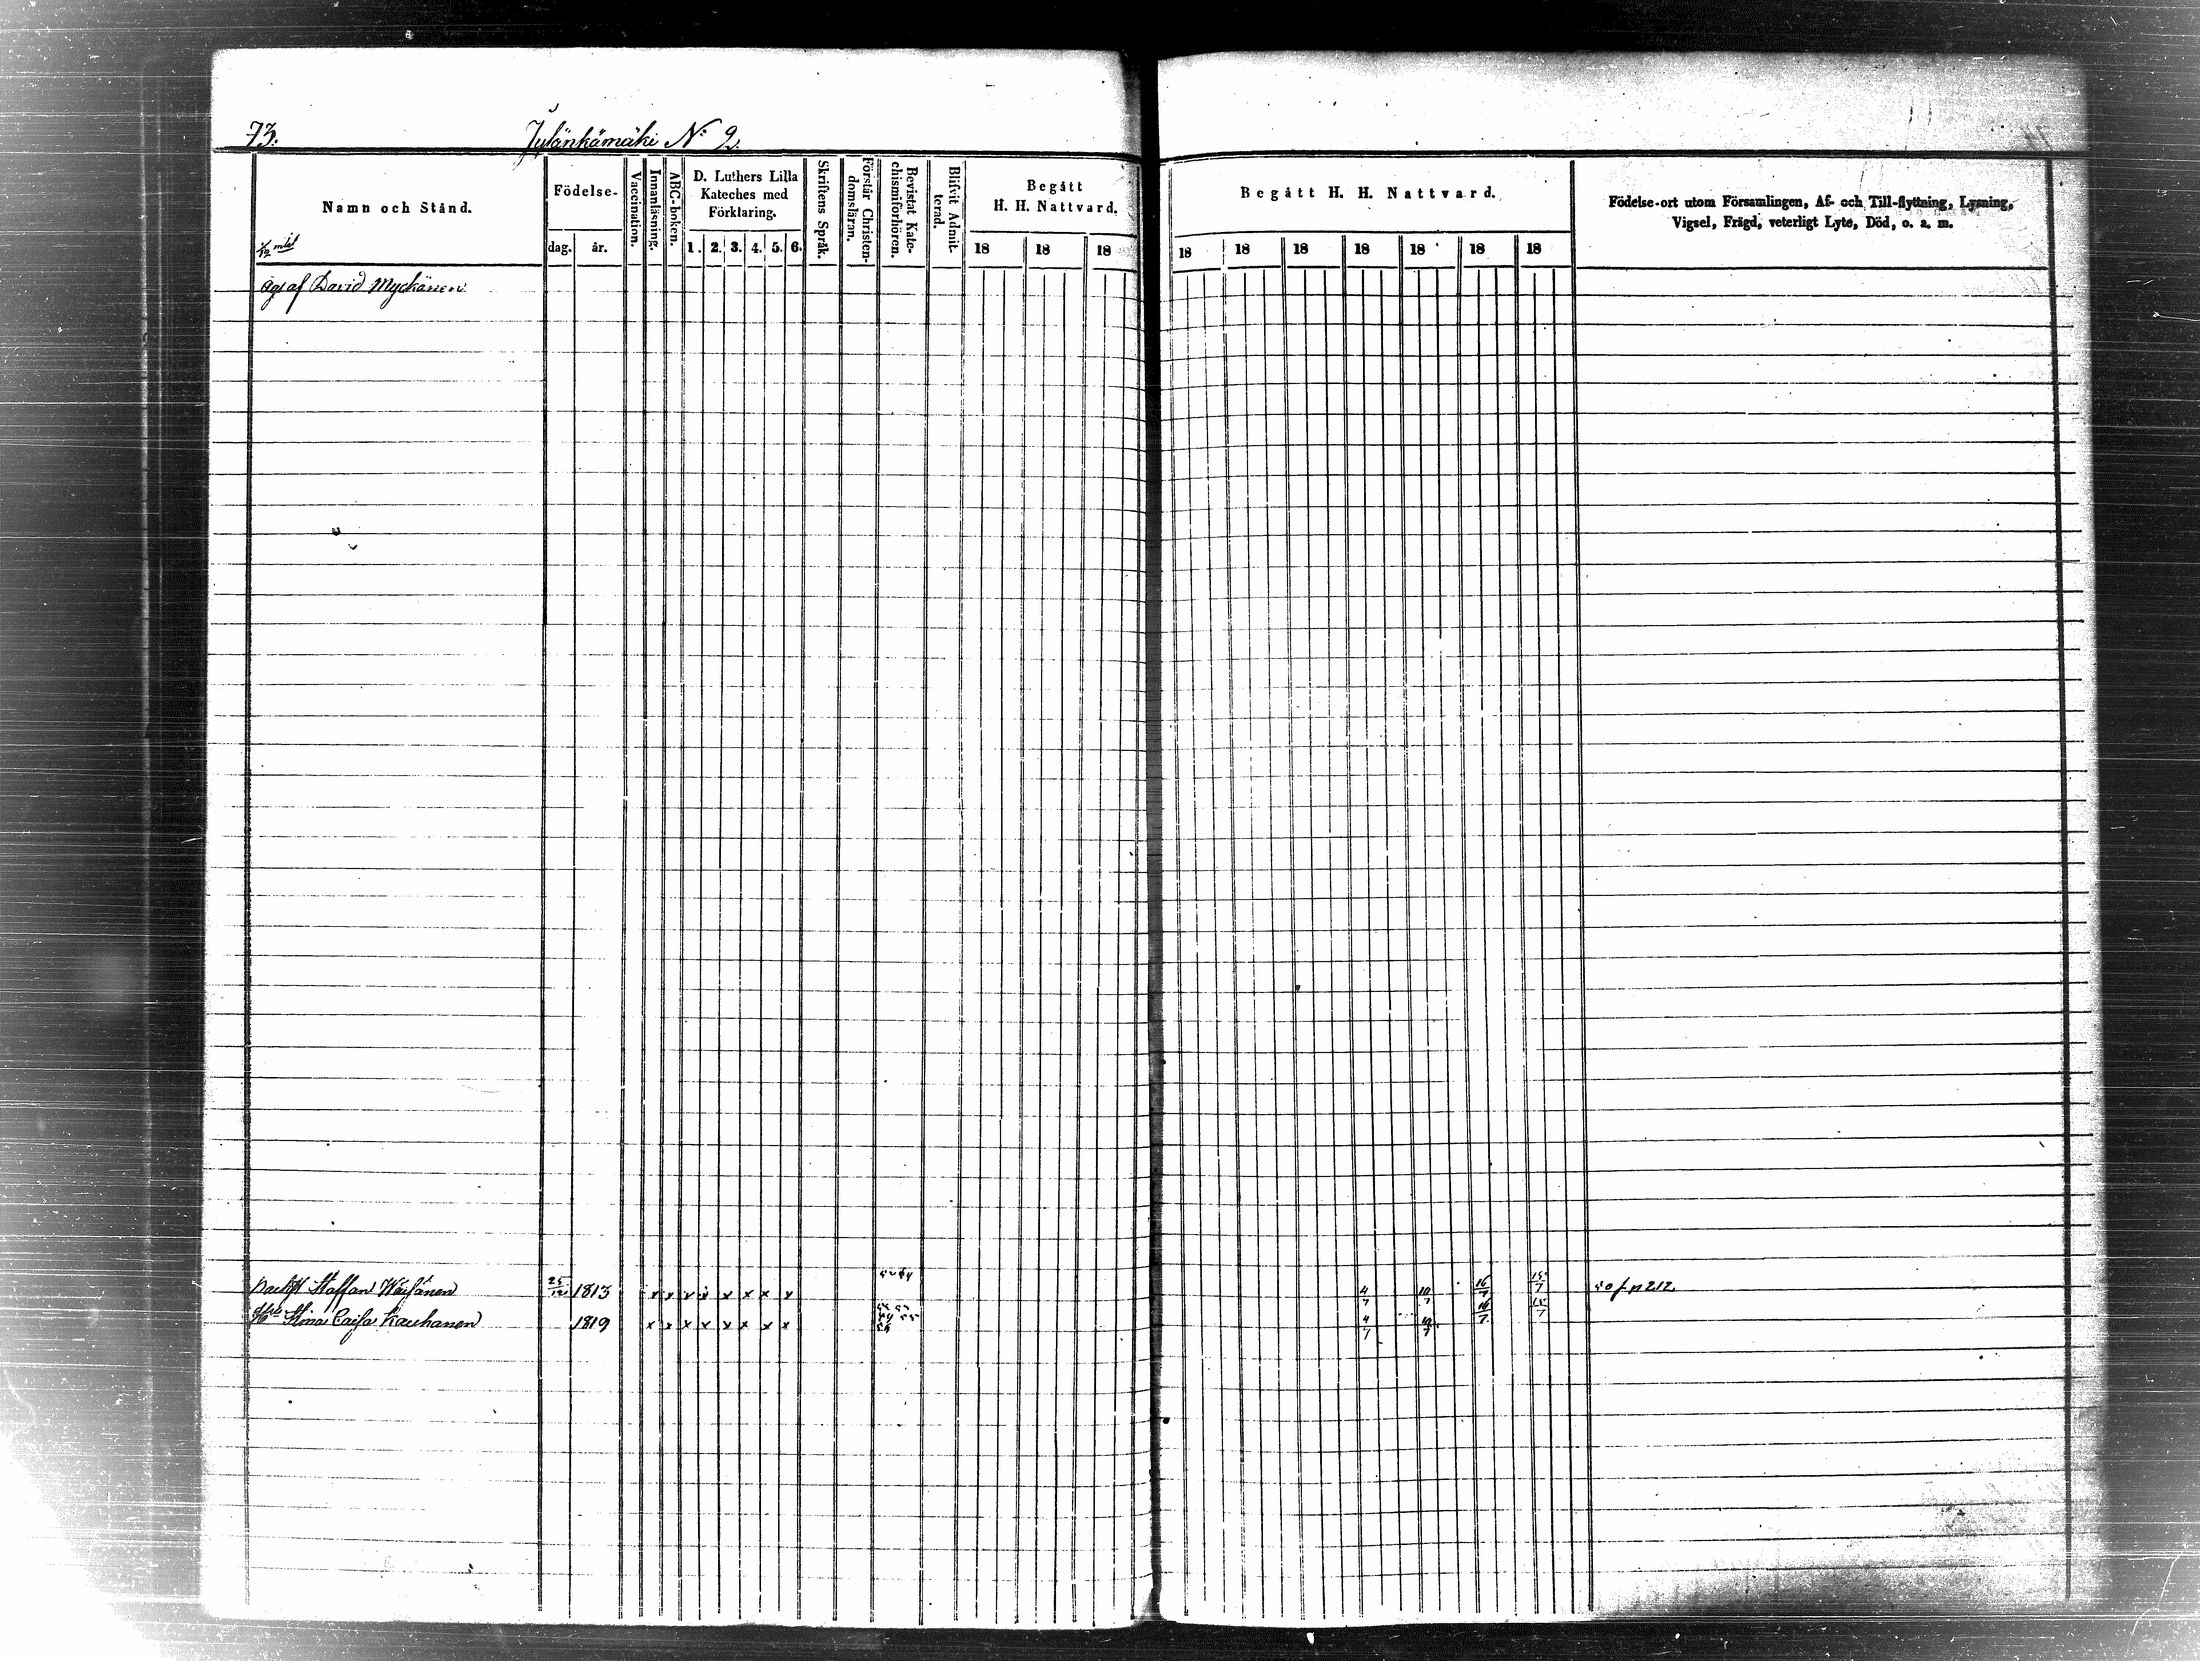 73. Julänkämäki N:o 2.
Namn och Stånd.
Födelse-
dag. år.
Vaccination.
Innanläsning.
ABC-boken.
D. Luthers Lilla
Kateches med
Förklaring.
1. 2. 3. 4. 5. 6.
Skriftens Språk.
Förstår Christen-
domsläran.
Bevistat Kate-
chismiförhören.
Blifvit Admit-
terad.
Begått
H. H. Nattvard.
18 18 18
Begått H. H. Nattvard.
18 18 18 18 18 18 18
Födelse-ort utom Församlingen, Af- och Till-flyttning, Lysning,
Vigsel, Frägd, veterligt Lyte, Död, o. a. m.
1/12 mtal
äges af David Myckänen
Staffan Wäisänen 25/12 1813 x x x x x x x x 4/7 10/7 16/7 15/7 50 f. p 212.
Stina Caisa Kauhanen 1819 x x x x x x x x 4/7 10/7 16/7 15/7